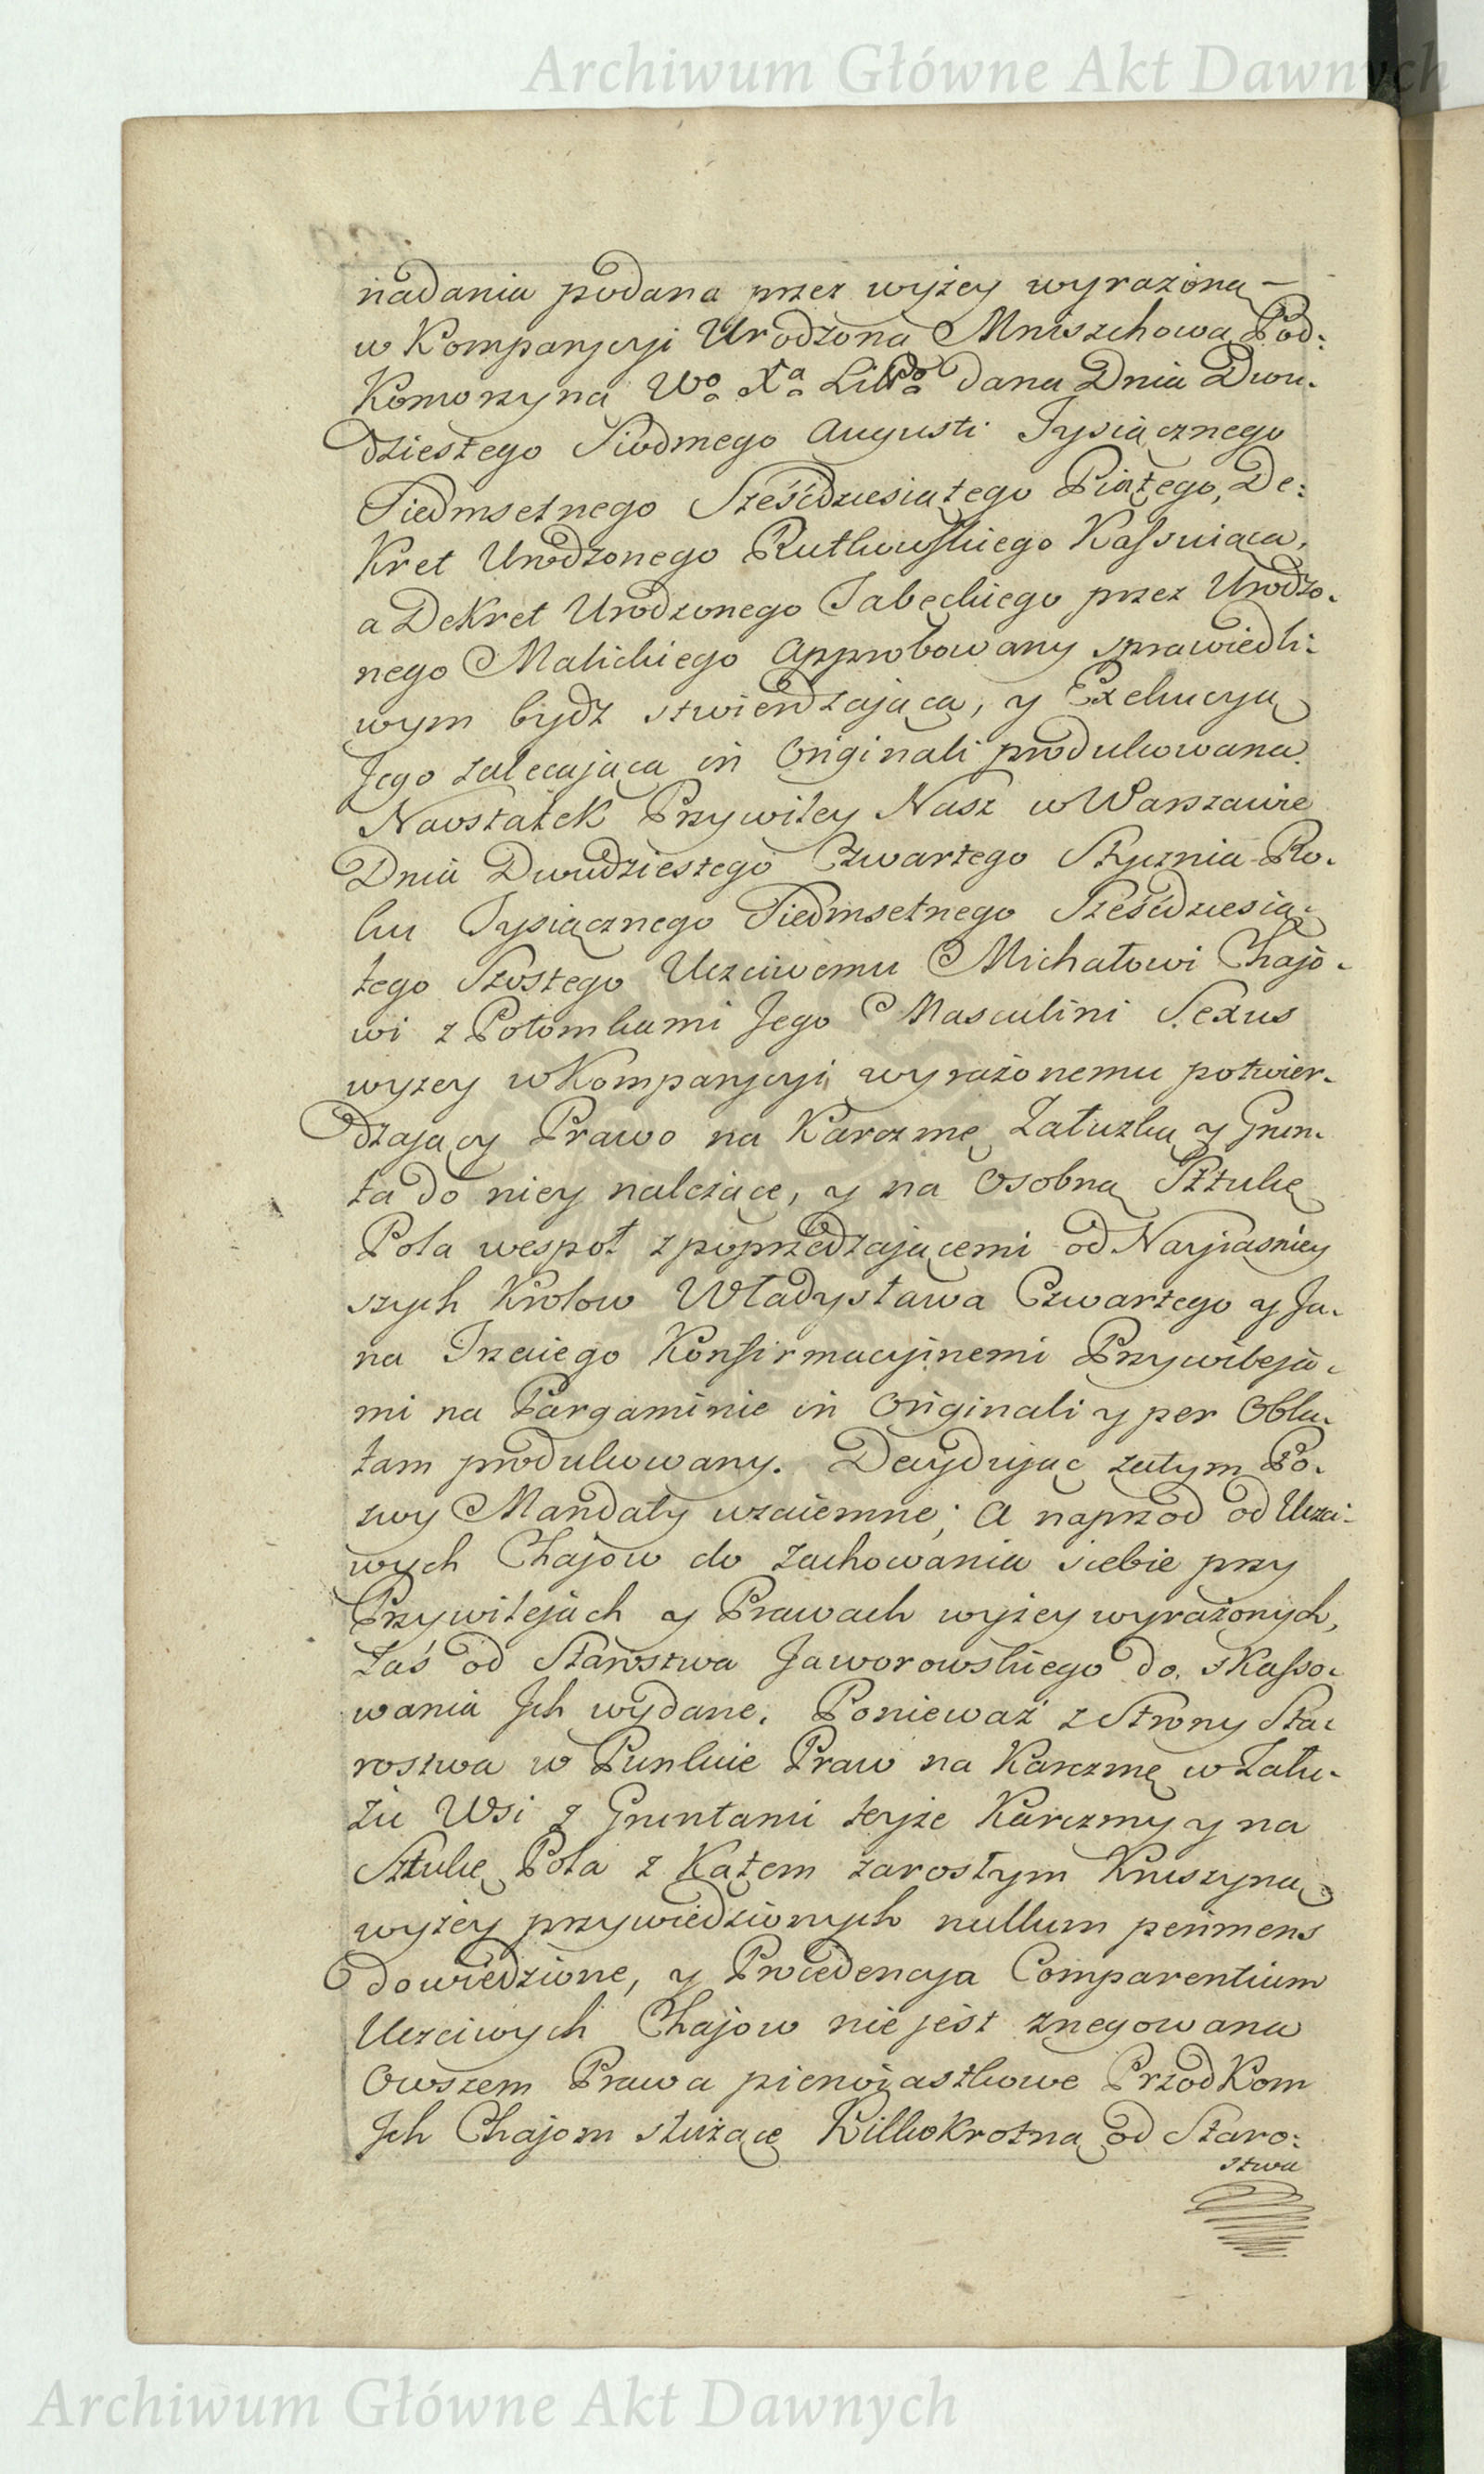 Archiwum Główne Akt Dawnych
nadania podana przez wyżey wyrażoną
w Kompanycyi Urodzoną Mniszchową Pod:
Komorzyną Wo Xa Litt dana Dnia Dwu-
dziestego Siodmego Augusti Tysiącznego
Siedmsetnego Sześćdziesiątego Piątego, De:
Kret Urodzonego Rutkowskiego Kassuiąca,
a DeKret Urodzonego Jabeckiego przez Urodzo-
nego Malickiego Approbowany sprawiedli-
wym bydź stwierdzaiąca, y Exekucyą
Jego zalecaiąca in Originali produkowana.
Naostatek Przywiley Nasz w Warszawie
Dnia Dwudziestego Czwartego Stycznia Ro-
ku Tysiącznego Siedmsetnego Sześćdziesią-
tego Szostego Uczciwemu Michałowi Chajo-
wi z Potomkami Jego Masculini Sexus
wyżey w Kompanycyi wyrażonemu potwier-
dzający Prawo na Karczmę Załuzką y Grun-
ta do niey należące, y na Osobną Sztukę
Pola wespoł z poprzedzaiącemi od Nayiasniey
szych Krolow Władysława Czwartego y Ja-
na Trzeciego Konfirmacyinemi Przywileja-
mi na Pargaminie in Originali y per Obla-
tam produkowany. Decydując zatym Po-
zwy Mandaty wzaiemne; A naprzod od Uczci-
wych Chajow do zachowania siebie przy
Przywilejach y Prawach wyżey wyrażonych,
Zaś od Starostwa Jaworowskiego do skasso-
wania Jch wydane. Ponieważ z Strony Sta-
rostwa w Punkcie Praw na Karczmę w Zału-
żu Wsi z Gruntami teyże Karczmy y na
Sztukę Pola z Kątem zarosłym Kruszyną
wyżey przywiedzionych nullum perimens
dowiedzione, y Procedencya Comparentium
Uczciwych Chajow nie jest znegowana
Owszem Prawa pierwiastkowe PrzodKom
Jch Chajom służące KilkoKrotną od Staro:
stwa
Archiwum Główne Akt Dawnych